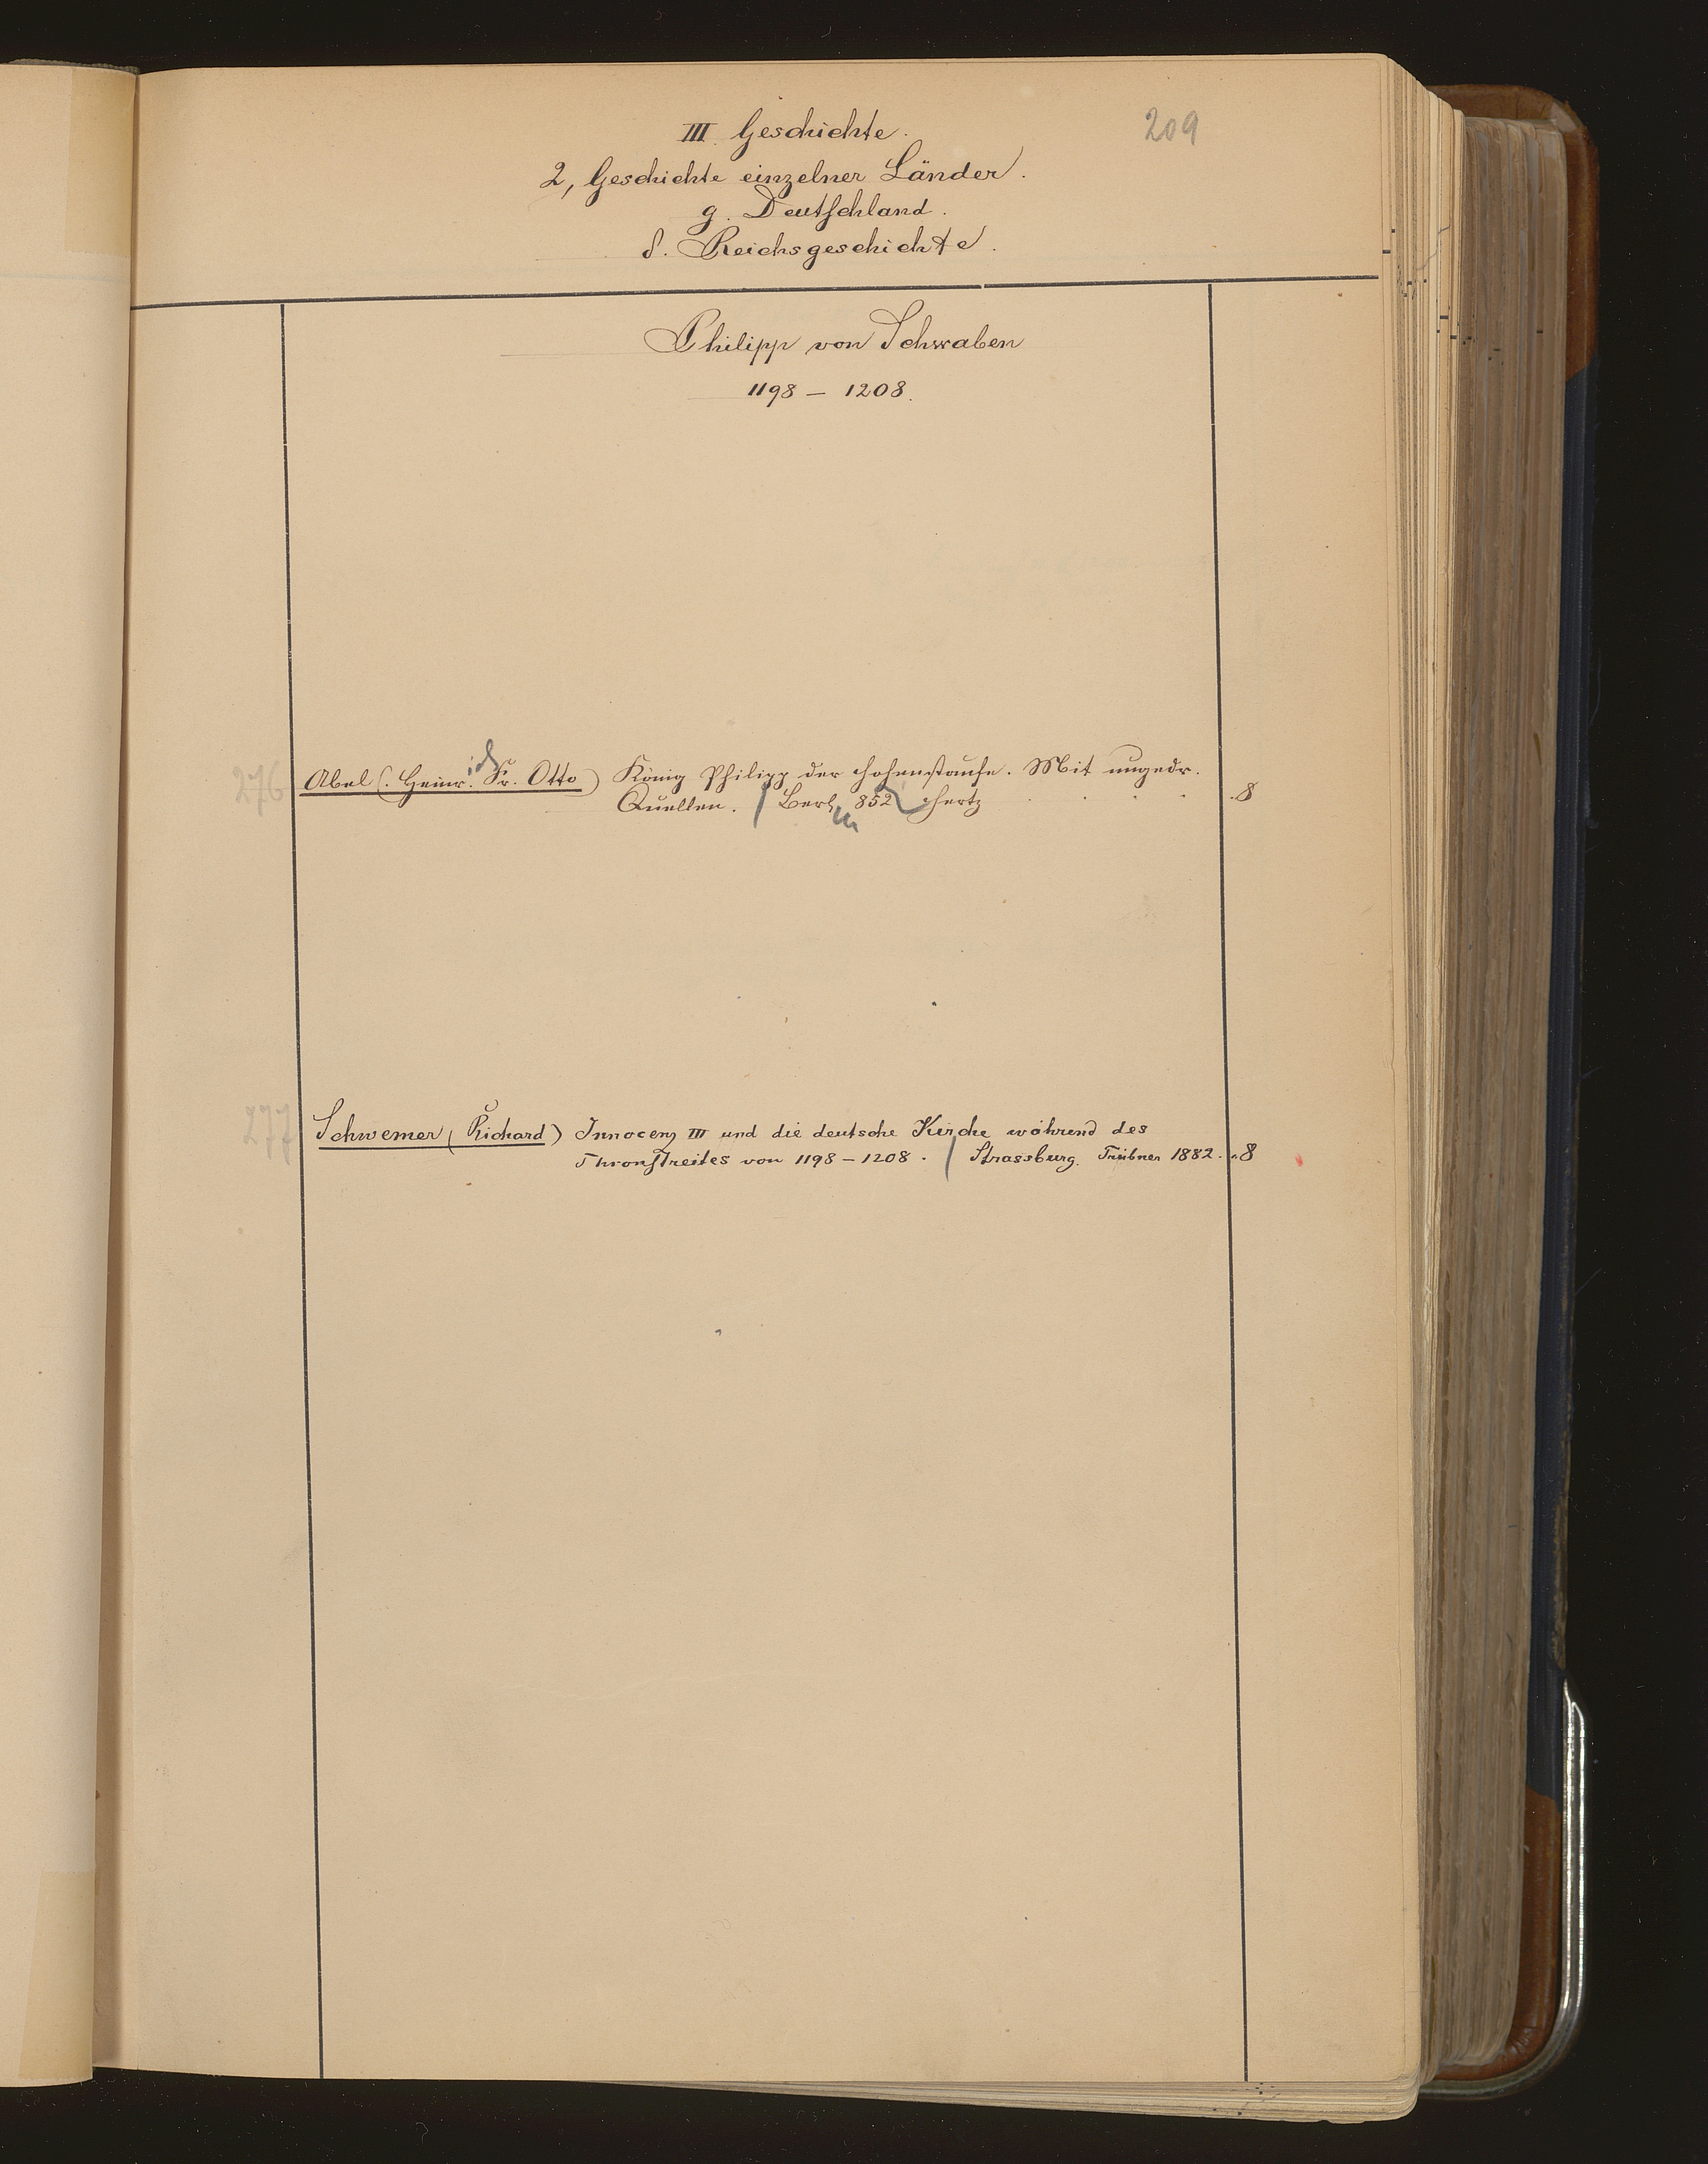 209
III. Geschichte.
2, Geschichte einzelner Länder.
g. Deutschland.
δ. Reichsgeschichte.
Philipp von Schwaben
1198 – 1208.
276 Abel (. Heinr. Fr. Otto) König Philipp der Hohenstaufe. Mit ungedr.
Quellen. / Berlin 852 Hertz . . . . 8
277 Schwemer (Richard) Innocenz III und die deutsche Kirche während des
Thronstreites von 1198 – 1208. / Strassburg. Trübner 1882. „ 8